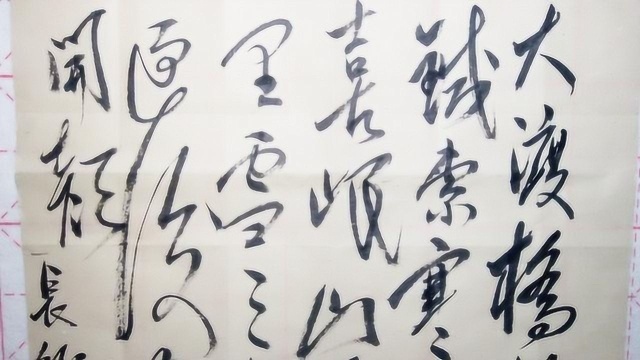 大渡橋
鐵索寒
喜岷山
里雪三
過後
開顏長